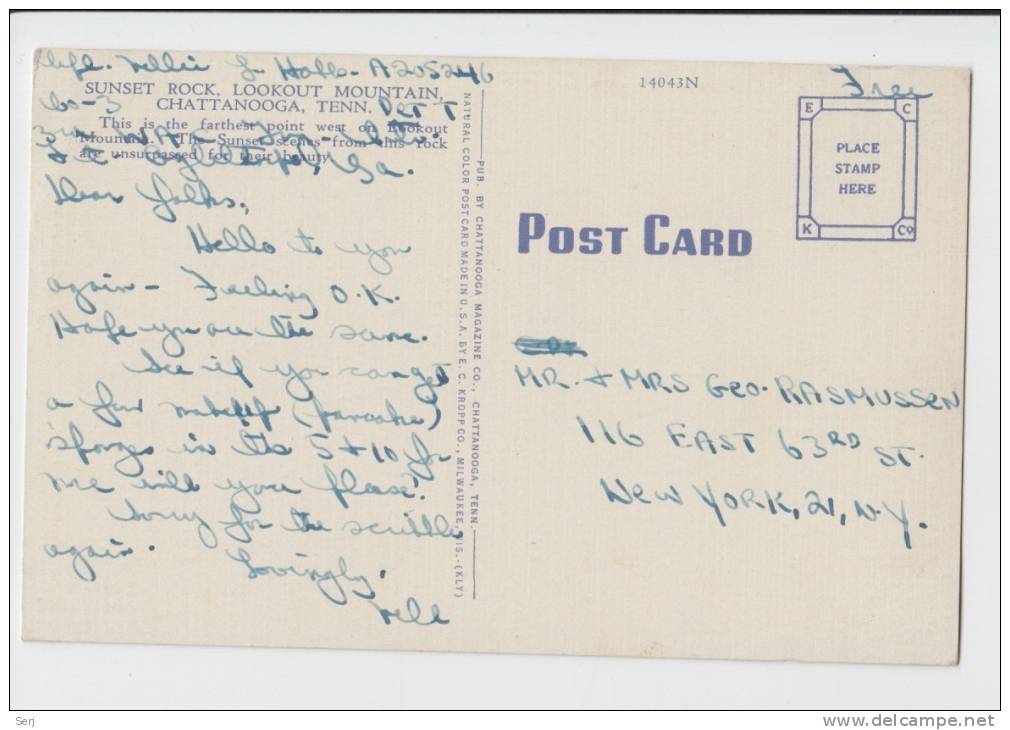 Nellie A205246
SUNSET ROCK, LOOKOUT MOUNTAIN,
CHATTANOOGA, TENN.
Co-3 Det T
This is the farthest point west on Lookout
Mountain. The Sunset scenes from this rock
are unsurpassed for their beauty.
3rd WAC
Ga.
Dear folks,
Hello to you
again - Feeling O.K.
Hope you are the same.
See if you can get
a few (pancake)
sponges in the 5 + 10 for
me will you please!
Sorry for the scribble
again.
Lovingly,
Nell
PUB. BY CHATTANOOGA MAGAZINE CO., CHATTANOOGA, TENN.
NATURAL COLOR POST CARD MADE IN U.S.A. BY E. C. KROPP CO., MILWAUKEE, WIS.-(KLY)
14043N
Free
E C
PLACE
STAMP
HERE
K Co
POST CARD
MR. + MRS GEO. RASMUSSEN
116 EAST 63RD ST.
NEW YORK, 21, N.Y.
Serj
delcampe.net